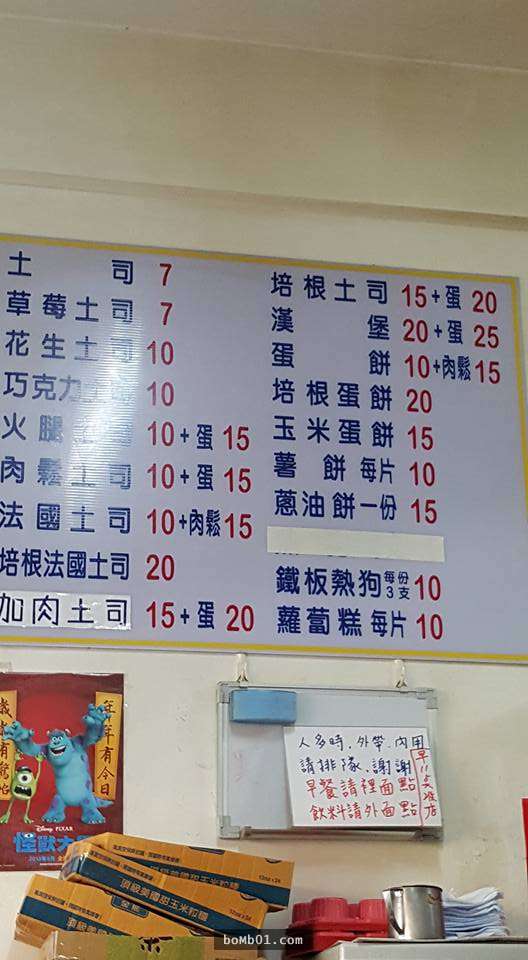 土司 7
草莓土司 7
花生土司 10
巧克力土司 10
火腿土司 10+蛋 15
肉鬆土司 10+蛋 15
法國土司 10+肉鬆 15
培根法國土司 20
加肉土司 15+蛋 20
培根土司 15+蛋 20
漢堡 20+蛋 25
蛋餅 10+肉鬆 15
培根蛋餅 20
玉米蛋餅 15
薯餅 每片 10
蔥油餅一份 15
鐵板熱狗 每份3支 10
蘿蔔糕 每片 10
人多時、外帶、內用
請排隊、謝謝
早餐請裡面點
飲料請外面點
年年有今日
Disney PIXAR
怪獸大
頂級美國甜玉米粒罐
頂級美國甜玉米粒罐
頂級美國甜玉米
bomb01.com